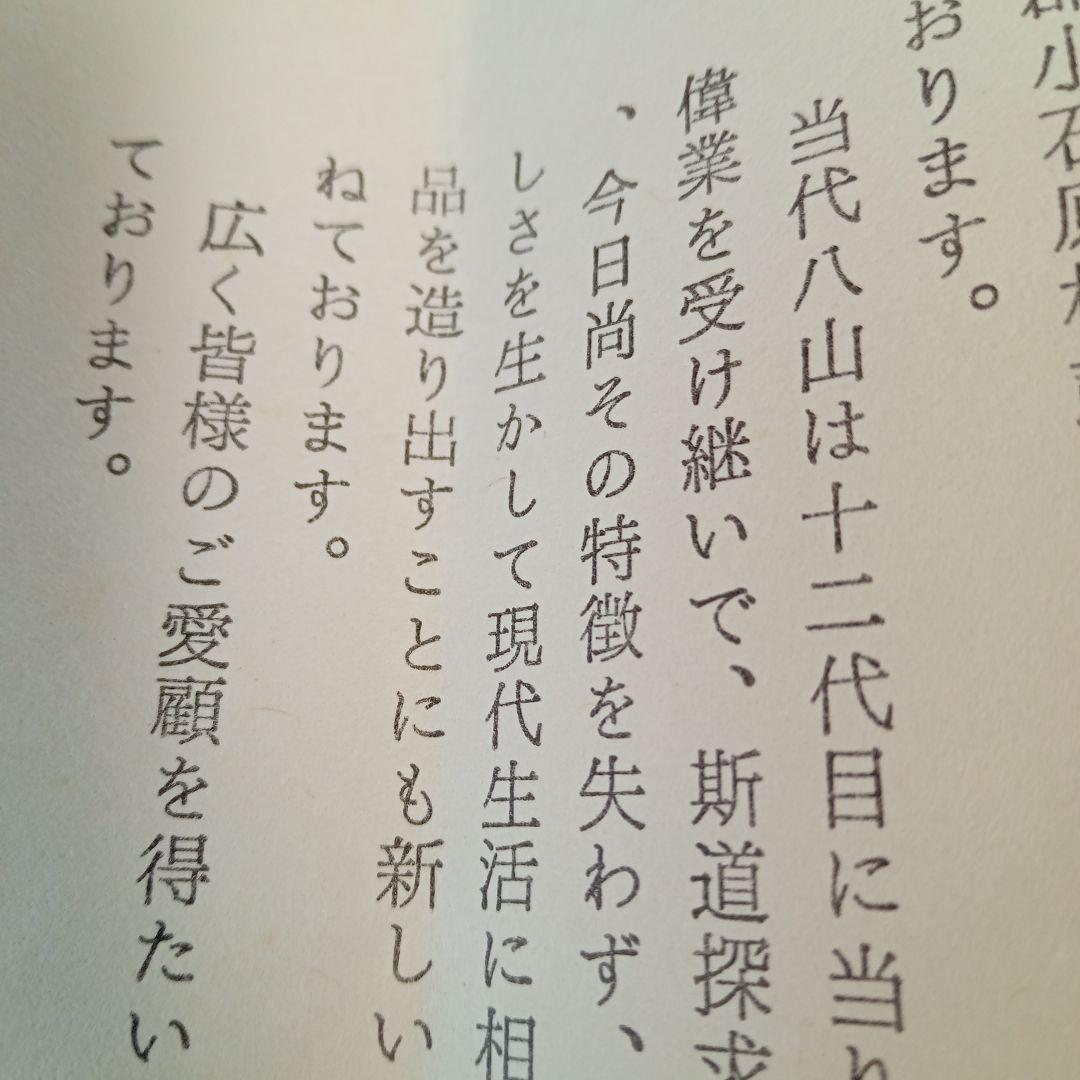 小石原
おります。
当代八山は十二代目に当り
偉業を受け継いで、斯道探求
、今日尚その特徴を失わず、
しさを生かして現代生活に相
品を造り出すことにも新しい
ねております。
広く皆様のご愛顧を得たい
ております。